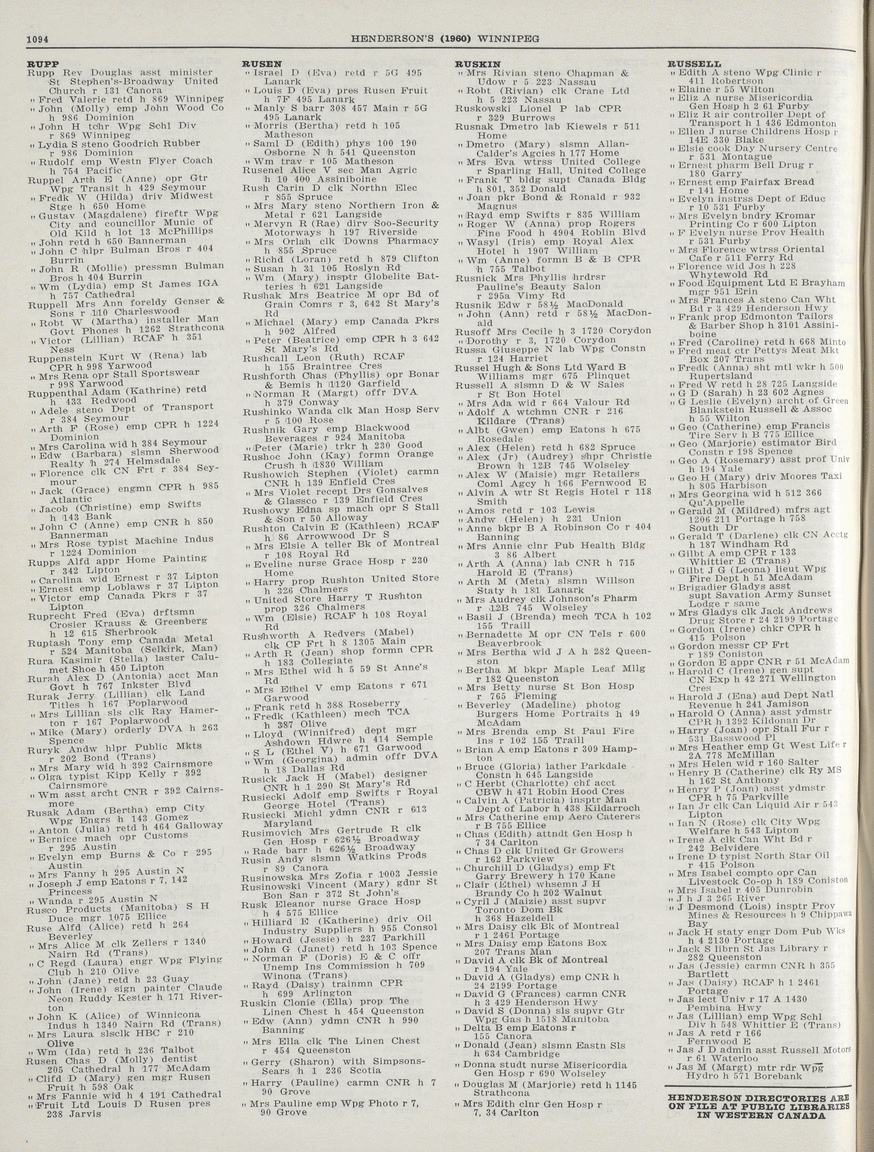 1094
HENDERSON'S (1960) WINNIPEG
RUPP
Rupp Rev Douglas asst minister
St Stephen's-Broadway United
Church r 131 Canora
" Fred Valerie retd h 869 Winnipeg
" John (Molly) emp John Wood Co
h 986 Dominion
" John H tchr Wpg Schl Div
r 869 Winnipeg
" Lydia S steno Goodrich Rubber
r 986 Dominion
" Rudolf emp Westn Flyer Coach
h 754 Pacific
Ruppel Arth E (Anne) opr Gtr
Wpg Transit h 429 Seymour
" Fredk W (Hilda) driv Midwest
Stge h 650 Home
" Gustav (Magdalene) fireftr Wpg
City and councillor Munic of
Old Kild h lot 13 McPhillips
" John retd h 650 Bannerman
" John C hlpr Bulman Bros r 404
Burrin
" John R (Mollie) pressmn Bulman
Bros h 404 Burrin
" Wm (Lydia) emp St James IGA
h 757 Cathedral
Ruppell Mrs Ann foreldy Genser &
Sons r 110 Charleswood
" Robt W (Martha) installer Man
Govt Phones h 1262 Strathcona
" Victor (Lillian) RCAF h 351
Ness
Ruppenstein Kurt W (Rena) lab
CPR h 998 Yarwood
" Mrs Rena opr Stall Sportswear
r 998 Yarwood
Ruppenthal Adam (Kathrine) retd
h 433 Redwood
" Adele steno Dept of Transport
r 384 Seymour
" Arth F (Rose) emp CPR h 1224
Dominion
" Mrs Carolina wid h 384 Seymour
" Edw (Barbara) slsmn Sherwood
Realty h 274 Helmsdale
" Florence clk CN Frt r 384 Sey-
mour
" Jack (Grace) engmn CPR h 985
Atlantic
" Jacob (Christine) emp Swifts
h 143 Bank
" John C (Anne) emp CNR h 850
Bannerman
" Mrs Rose typist Machine Indus
r 1224 Dominion
Rupps Alfd appr Home Painting
r 342 Lipton
" Carolina wid Ernest r 37 Lipton
" Ernest emp Loblaws r 37 Lipton
" Victor emp Canada Pkrs r 37
Lipton
Ruprecht Fred (Eva) drftsmn
Crosier Krauss & Greenberg
h 12 615 Sherbrook
Ruptash Tony emp Canada Metal
r 524 Manitoba (Selkirk, Man)
Rura Kasimir (Stella) laster Calu-
met Shoe h 450 Lipton
Rurah Alex D (Antonia) acct Man
Govt h 767 Inkster Blvd
Rurak Jerry (Lillian) clk Land
Titles h 167 Poplarwood
" Mrs Lillian sls clk Ray Hamer-
ton r 167 Poplarwood
" Mike (Mary) orderly DVA h 263
Spence
Ruryk Andw hlpr Public Mkts
r 202 Bond (Trans)
" Mrs Mary wid h 392 Cairnsmore
" Olga typist Kipp Kelly r 392
Cairnsmore
" Wm asst archt CNR r 392 Cairns-
more
Rusak Adam (Bertha) emp City
Wpg Engrs h 143 Gomez
" Anton (Julia) retd h 464 Galloway
" Bernice mach opr Customs
r 295 Austin
" Evelyn emp Burns & Co r 295
Austin
" Mrs Fanny h 295 Austin N
" Joseph J emp Eatons r 7, 142
Princess
" Wanda r 295 Austin N
Rusco Products (Manitoba) S H
Duce mgr 1075 Ellice
Ruse Alfd (Alice) retd h 264
Beverley
" Mrs Alice M clk Zellers r 1340
Nairn Rd (Trans)
" C Regd (Laura) engr Wpg Flying
Club h 210 Olive
" John (Jane) retd h 23 Guay
" John (Irene) sign painter Claude
Neon Ruddy Kester h 171 River-
ton
" John K (Alice) of Winnicona
Indus h 1340 Nairn Rd (Trans)
" Mrs Laura slsclk HBC r 210
Olive
" Wm (Ida) retd h 236 Talbot
Rusen Chas D (Molly) dentist
205 Cathedral h 177 McAdam
" Clifd D (Mary) gen mgr Rusen
Fruit h 598 Oak
" Mrs Fannie wid h 4 191 Cathedral
" Fruit Ltd Louis D Rusen pres
238 Jarvis
RUSEN
" Israel D (Eva) retd r 5G 495
Lanark
" Louis D (Eva) pres Rusen Fruit
h 7F 495 Lanark
" Manly S barr 308 457 Main r 5G
495 Lanark
" Morris (Bertha) retd h 105
Matheson
" Saml D (Edith) phys 100 190
Osborne N h 541 Queenston
" Wm trav r 105 Matheson
Rusenel Alice V sec Man Agric
h 10 400 Assiniboine
Rush Carin D clk Northn Elec
r 855 Spruce
" Mrs Mary steno Northern Iron &
Metal r 621 Langside
" Mervyn R (Rae) dirv Soo-Security
Motorways h 197 Riverside
" Mrs Orlah clk Downs Pharmacy
h 855 Spruce
" Richd (Loran) retd h 879 Clifton
" Susan h 31 105 Roslyn Rd
" Wm (Mary) insptr Globelite Bat-
teries h 621 Langside
Rushak Mrs Beatrice M opr Bd of
Grain Comrs r 3, 642 St Mary's
Rd
" Michael (Mary) emp Canada Pkrs
h 902 Alfred
" Peter (Beatrice) emp CPR h 3 642
St Mary's Rd
Rushcall Leon (Ruth) RCAF
h 155 Braintree Cres
Rushforth Chas (Phyllis) opr Bonar
& Bemis h 1120 Garfield
" Norman R (Margt) offr DVA
h 379 Conway
Rushinko Wanda clk Man Hosp Serv
r 5 100 Rose
Rushnik Gary emp Blackwood
Beverages r 924 Manitoba
" Peter (Marie) trkr h 230 Good
Rushoc John (Kay) formn Orange
Crush h 1830 William
Rushowich Stephen (Violet) carmn
CNR h 139 Enfield Cres
" Mrs Violet recept Drs Gonsalves
& Glassco r 139 Enfield Cres
Rushowy Edna sp mach opr S Stall
& Son r 50 Alloway
Rushton Calvin E (Kathleen) RCAF
h 86 Arrowwood Dr S
" Mrs Elsie A teller Bk of Montreal
r 108 Royal Rd
" Eveline nurse Grace Hosp r 230
Home
" Harry prop Rushton United Store
h 326 Chalmers
" United Store Harry T Rushton
prop 326 Chalmers
" Wm (Elsie) RCAF h 108 Royal
Rd
Rushworth A Redvers (Mabel)
clk CP Frt h 8 1305 Main
" Arth R (Jean) shop formn CPR
h 183 Collegiate
" Mrs Ethel wid h 5 59 St Anne's
Rd
" Mrs Ethel V emp Eatons r 671
Garwood
" Frank retd h 388 Roseberry
" Fredk (Kathleen) mech TCA
h 387 Olive
" Lloyd (Winnifred) dept mgr
Ashdown Hdwre h 414 Semple
" S L (Ethel V) h 671 Garwood
" Wm (Georgina) admin offr DVA
h 18 Dallas Rd
Rusick Jack H (Mabel) designer
CNR h 1 290 St Mary's Rd
Rusiecki Adolf emp Swifts r Royal
George Hotel (Trans)
Rusiecki Michl ydmn CNR r 613
Maryland
Rusimovich Mrs Gertrude R clk
Gen Hosp r 626½ Broadway
" Rade barr h 626½ Broadway
Rusin Andy slsmn Watkins Prods
r 89 Canora
Rusinowska Mrs Zofia r 1003 Jessie
Rusinowski Vincent (Mary) gdnr St
Bon San r 372 St John's
Rusk Eleanor nurse Grace Hosp
h 4 575 Ellice
" Hilliard E (Katherine) driv Oil
Industry Suppliers h 955 Consol
" Howard (Jessie) h 237 Parkhill
" John G (Janet) retd h 103 Spence
" Norman F (Doris) E & C offr
Unemp Ins Commission h 709
Winona (Trans)
" Rayd (Daisy) trainmn CPR
h 699 Arlington
Ruskin Clonie (Ella) prop The
Linen Chest h 454 Queenston
" Edw (Ann) ydmn CNR h 990
Banning
" Mrs Ella clk The Linen Chest
r 454 Queenston
" Gerry (Sharon) with Simpsons-
Sears h 1 236 Scotia
" Harry (Pauline) carmn CNR h 7
90 Grove
" Mrs Pauline emp Wpg Photo r 7,
90 Grove
RUSKIN
" Mrs Rivian steno Chapman &
Udow r 5 223 Nassau
" Robt (Rivian) clk Crane Ltd
h 5 223 Nassau
Ruskowski Lionel P lab CPR
r 329 Burrows
Rusnak Dmetro lab Kiewels r 511
Home
" Dmetro (Mary) slsmn Allan-
Calder's Agcies h 177 Home
" Mrs Eva wtrss United College
r Sparling Hall, United College
" Frank T bldg supt Canada Bldg
h 801, 352 Donald
" Joan pkr Bond & Ronald r 932
Magnus
" Rayd emp Swifts r 835 William
" Roger W (Anna) prop Rogers
Fine Food h 4904 Roblin Blvd
" Wasyl (Iris) emp Royal Alex
Hotel h 1907 William
" Wm (Anne) formn B & B CPR
h 755 Talbot
Rusnick Mrs Phyllis hrdrsr
Pauline's Beauty Salon
r 295a Vimy Rd
Rusnik Edw r 58½ MacDonald
" John (Ann) retd r 58½ MacDon-
ald
Rusoff Mrs Cecile h 3 1720 Corydon
" Dorothy r 3, 1720 Corydon
Russa Giuseppe N lab Wpg Constn
r 124 Harriet
Russel Hugh & Sons Ltd Ward B
Williams mgr 675 Plinquet
Russell A slsmn D & W Sales
r St Bon Hotel
" Mrs Ada wid r 664 Valour Rd
" Adolf A wtchmn CNR r 216
Kildare (Trans)
" Albt (Gwen) emp Eatons h 675
Rosedale
" Alex (Helen) retd h 682 Spruce
" Alex (Jr) (Audrey) shpr Christie
Brown h 12B 745 Wolseley
" Alex W (Maisie) mgr Retailers
Coml Agcy h 166 Fernwood E
" Alvin A wtr St Regis Hotel r 118
Smith
" Amos retd r 103 Lewis
" Andw (Helen) h 231 Union
" Anne bkpr B A Robinson Co r 404
Banning
" Mrs Annie clnr Pub Health Bldg
3 86 Albert
" Arth A (Anna) lab CNR h 715
Harold E (Trans)
" Arth M (Meta) slsmn Willson
Staty h 181 Lanark
" Mrs Audrey clk Johnson's Pharm
r 12B 745 Wolseley
" Basil J (Brenda) mech TCA h 102
155 Traill
" Bernadette M opr CN Tels r 600
Beaverbrook
" Mrs Bertha wid J A h 282 Queen-
ston
" Bertha M bkpr Maple Leaf Mllg
r 182 Queenston
" Mrs Betty nurse St Bon Hosp
r 765 Fleming
" Beverley (Madeline) photog
Burgers Home Portraits h 49
McAdam
" Mrs Brenda emp St Paul Fire
Ins r 102 155 Traill
" Brian A emp Eatons r 309 Hamp-
ton
" Bruce (Gloria) lather Parkdale
Constn h 645 Langside
" C Herbt (Charlotte) chf acct
CBW h 471 Robin Hood Cres
" Calvin A (Patricia) insptr Man
Dept of Labor h 438 Kildarroch
" Mrs Catherine emp Aero Caterers
r B 755 Ellice
" Chas (Edith) attndt Gen Hosp h
7 34 Carlton
" Chas D clk United Gr Growers
r 162 Parkview
" Churchill D (Gladys) emp Ft
Garry Brewery h 170 Kane
" Clair (Ethel) whsemn J H
Brandy Co h 202 Walnut
" Cyril J (Maizie) asst supvr
Toronto Dom Bk
h 368 Hazeldell
" Mrs Daisy clk Bk of Montreal
r 1 2461 Portage
" Mrs Daisy emp Eatons Box
207 Trans Man
" David A clk Bk of Montreal
r 194 Yale
" David A (Gladys) emp CNR h
24 2199 Portage
" David G (Frances) carmn CNR
h 3 429 Henderson Hwy
" David S (Donna) sls supvr Gtr
Wpg Gas h 1518 Manitoba
" Delta B emp Eatons r
155 Canora
" Donald (Jean) slsmn Eastn Sls
h 634 Cambridge
" Donna studt nurse Misericordia
Gen Hosp r 690 Wolseley
" Douglas M (Marjorie) retd h 1145
Strathcona
" Mrs Edith clnr Gen Hosp r
7, 34 Carlton
RUSSELL
" Edith A steno Wpg Clinic r
411 Robertson
" Elaine r 55 Wilton
" Eliz A nurse Misericordia
Gen Hosp h 3 61 Furby
" Eliz R air controller Dept of
Transport h 1 436 Edmonton
" Ellen J nurse Childrens Hosp r
14E 330 Blake
" Elsie cook Day Nursery Centre
r 531 Montague
" Ernest pharm Bell Drug r
180 Garry
" Ernest emp Fairfax Bread
r 141 Home
" Evelyn instrss Dept of Educ
r 10 531 Furby
" Mrs Evelyn bndry Kromar
Printing Co r 600 Lipton
" F Evelyn nurse Prov Health
r 531 Furby
" Mrs Florence wtrss Oriental
Cafe r 511 Ferry Rd
" Florence wid Jos h 228
Whytewold Rd
" Food Equipment Ltd E Brayham
mgr 951 Erin
" Mrs Frances A steno Can Wht
Bd r 3 429 Henderson Hwy
" Frank prop Edmonton Tailors
& Barber Shop h 3101 Assini-
boine
" Fred (Caroline) retd h 668 Minto
" Fred meat ctr Pettys Meat Mkt
Box 207 Trans
" Fredk (Anna) sht mtl wkr h 500
Rupertsland
" Fred W retd h 28 725 Langside
" G D (Sarah) h 23 602 Agnes
" G Leslie (Evelyn) archt of Green
Blankstein Russell & Assoc
h 55 Wilton
" Geo (Catherine) emp Francis
Tire Serv h B 775 Ellice
" Geo (Marjorie) estimator Bird
Constn r 198 Spence
" Geo A (Rosemary) asst prof Univ
h 194 Yale
" Geo H (Mary) driv Moores Taxi
h 805 Harbison
" Mrs Georgina wid h 512 366
Qu'Appelle
" Gerald M (Mildred) mfrs agt
1206 211 Portage h 758
South Dr
" Gerald T (Darlene) clk CN Acctg
h 187 Windham Rd
" Gilbt A emp CPR r 133
Whittier E (Trans)
" Gilbt J G (Leona) lieut Wpg
Fire Dept h 51 McAdam
" Brigadier Gladys asst
supt Savation Army Sunset
Lodge r same
" Mrs Gladys clk Jack Andrews
Drug Store r 24 2199 Portage
" Gordon (Irene) chkr CPR h
415 Polson
" Gordon messr CP Frt
r 189 Coniston
" Gordon E appr CNR r 51 McAdam
" Harold C (Irene) gen supt
CN Exp h 42 271 Wellington
Cres
" Harold J (Ena) aud Dept Natl
Revenue h 241 Jamison
" Harold O (Anna) asst ydmstr
CPR h 1392 Kildonan Dr
" Harry (Joan) opr Stall Fur r
531 Basswood Pl
" Mrs Heather emp Gt West Life r
2A 778 McMillan
" Mrs Helen wid r 160 Salter
" Henry B (Catherine) clk Ry MS
h 162 St Anthony
" Henry P (Joan) asst ydmstr
CPR h 75 Parkville
" Ian Jr clk Can Liquid Air r 543
Lipton
" Ian N (Rose) clk City Wpg
Welfare h 543 Lipton
" Irene A clk Can Wht Bd r
242 Belvidere
" Irene D typist North Star Oil
r 415 Polson
" Mrs Isabel compto opr Can
Livestock Co-op h 189 Coniston
" Mrs Isabel r 405 Dunrobin
" J h J 3 265 River
" J Desmond (Lois) insptr Prov
Mines & Resources h 9 Chippawa
Bay
" Jack H staty engr Dom Pub Wks
h 4 2130 Portage
" Jack S librn St Jas Library r
282 Queenston
" Jas (Jessie) carmn CNR h 355
Bartlett
" Jas (Daisy) RCAF h 1 2461
Portage
" Jas lect Univ r 17 A 1430
Pembina Hwy
" Jas (Lillian) emp Wpg Schl
Div h 548 Whittier E (Trans)
" Jas A retd r 166
Fernwood E
" Jas J D admin asst Russell Motors
r 61 Waterloo
" Jas M (Margt) mtr rdr Wpg
Hydro h 571 Borebank
HENDERSON DIRECTORIES ARE
ON FILE AT PUBLIC LIBRARIES
IN WESTERN CANADA